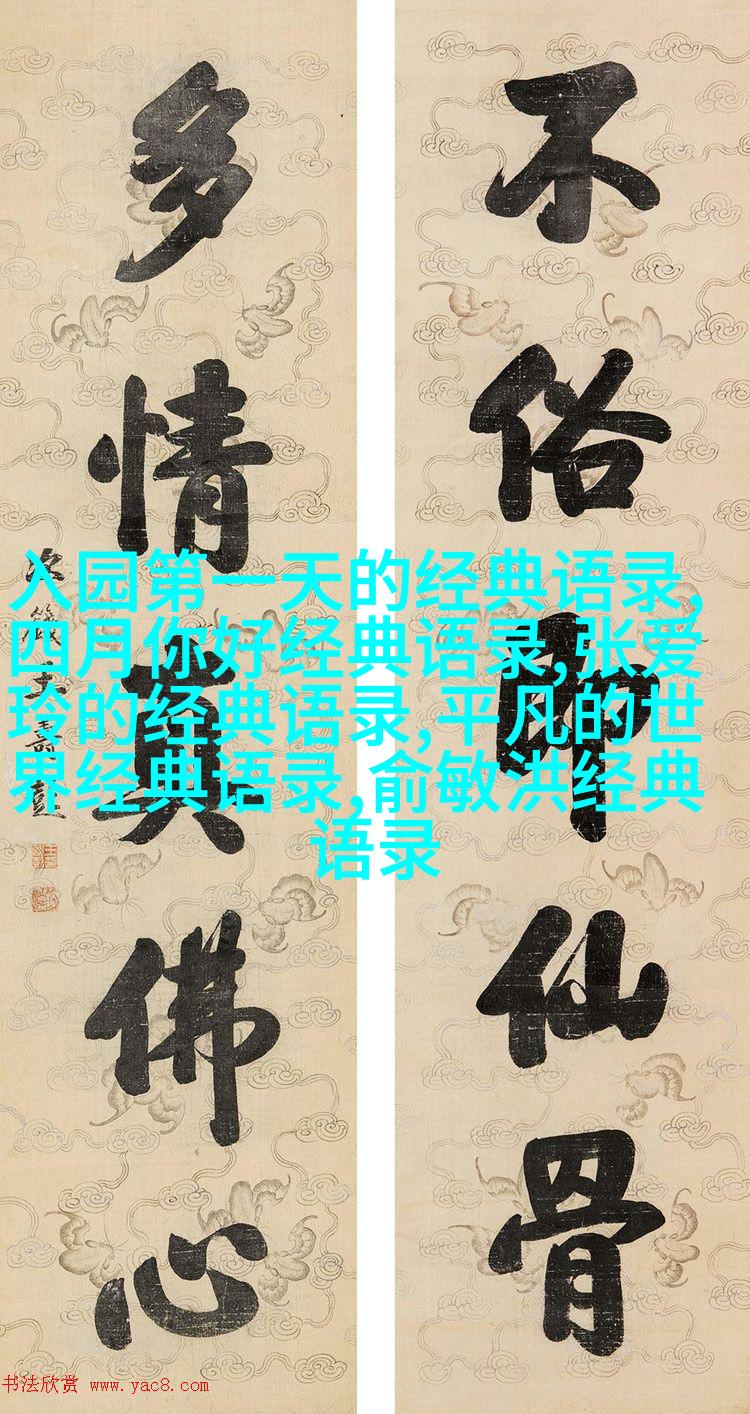 不俗即仙骨
多情真佛心
次籛王壽彭
入园第一天的经典语录,
四月你好经典语录,张爱
玲的经典语录,平凡的世
界经典语录,俞敏洪经典
语录
书法欣赏 www.yac8.com